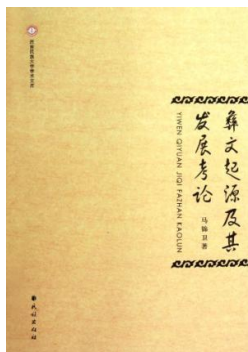 西南民族大学学术文库
彝文起源及其
发展考论
YIWEN QIYUAN JIQI FAZHAN KAOLUN
马锦卫 著
民族出版社